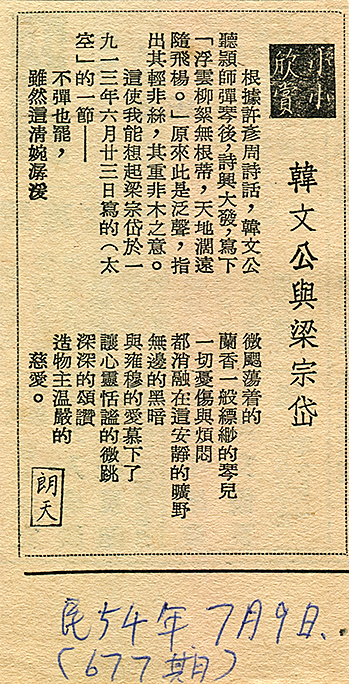 小小
欣賞
韓文公與梁宗岱
根據許彥周詩話，韓文公
聽穎師彈琴後，詩興大發，寫下
「浮雲柳絮無根蒂，天地濶遠
隨飛楊。」原來此是泛聲，指
出其輕非絲，其重非木之意。
這使我能想起梁宗岱於一
九一三年六月廿三日寫的（太
空）的一節——
不彈也罷，
雖然這清婉潺湲
微颸蕩着的
蘭香一般縹緲的琴兒
一切憂傷與煩悶
都消融在這安靜的曠野
無邊的黑暗
與雍穆的愛慕下了
讓心靈恬謐的微跳
深深的頌讚
造物主溫嚴的
慈愛。
朗天
民54年7月9日、
(677期)